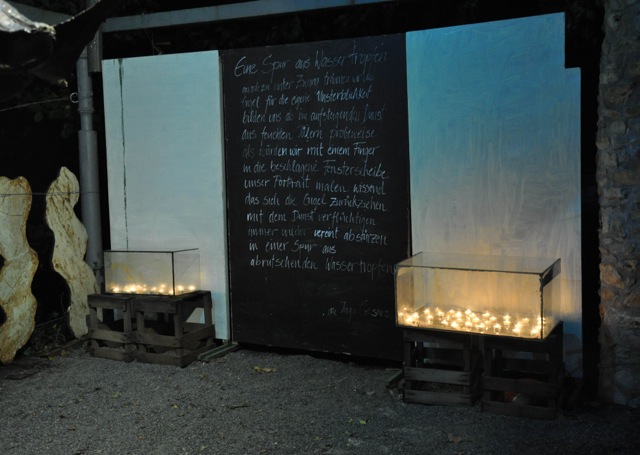 Eine Spur aus Wassertropfen
unter Zungen träumen wilde
Engel für die eigene Unsterblichkeit
bilden uns ab im aufsteigenden Dunst
aus feuchten probeweise
als würden wir mit einem Finger
in die beschlagene Fensterscheibe
unser Portrait malen wissend
das sich die Engel zurückziehen
mit dem Dunst verflüchtigen
immer wieder vereint abstürzen
in einer Spur aus
abrutschenden Wassertropfen